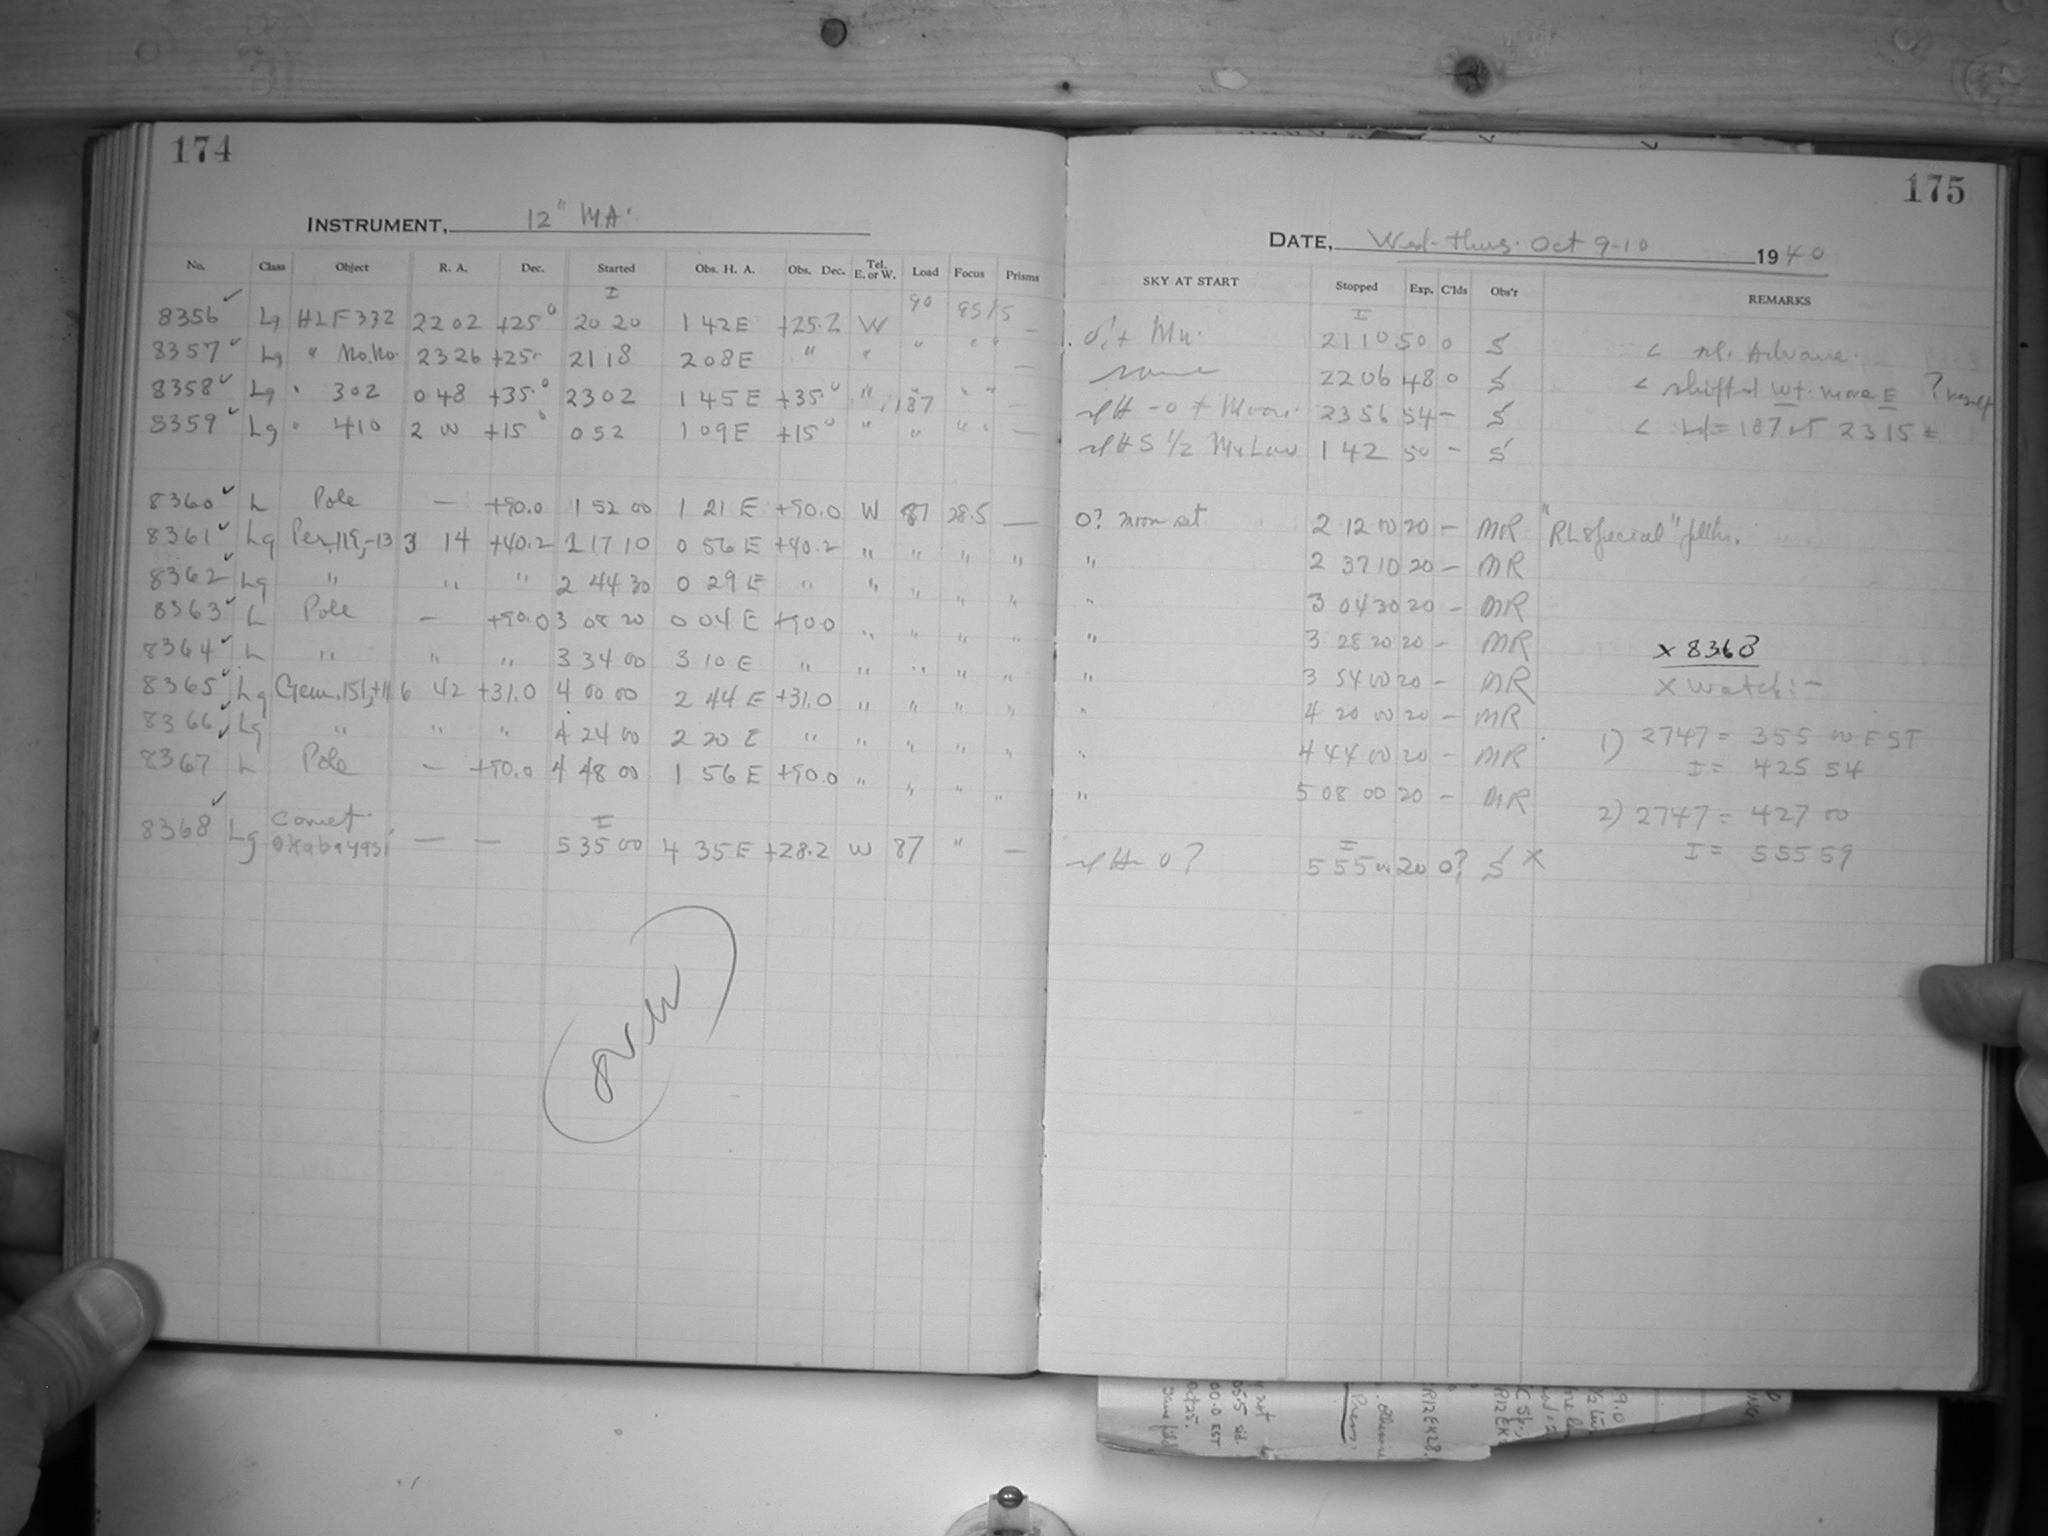 174
INSTRUMENT, 12" MA.
No. Class Object R. A. Dec. Started Obs. H. A. Obs. Dec. Tel. E. or W. Load Focus Prisms
I
8356 ✓ Lg HLF 332 22 02 +25° 20 20 1 42 E +25.2 W 90
8357 ✓ Lg " No.No. 23 26 +25. 21 18 2 08 E " " " " " —
8358 ✓ Lg " 302 0 48 +35.° 23 02 1 45 E +35° " 187 " " —
8359 ✓ Lg " 410 2 W +15° 0 52 1 09 E +15° " " " " —
8360 ✓ L Pole — +90.0 1 52 00 1 21 E +90.0 W 87 28.5 —
8361 ✓ Lg Per, 119, -13 3 14 +40.2 2 17 10 0 56 E +40.2 " " " "
8362 ✓ Lg " " " 2 44 30 0 29 E " " " " "
8363 ✓ L Pole — +90.0 3 08 20 0 04 E +90.0 " " " "
8364 ✓ L " " " 3 34 00 3 10 E " " " " "
8365 ✓ Lg Gem, 151, +11 6 42 +31.0 4 00 00 2 44 E +31.0 " " " "
8366 ✓ Lg " " " 4 24 00 2 20 E " " " " "
8367 L Pole — +90.0 4 48 00 1 56 E +90.0 " " " "
8368 ✓ Lg Comet Okabayasi — — I 5 35 00 4 35 E +28.2 W 87 " —
over
175
DATE, Wed-Thurs. Oct 9-10 1940
SKY AT START Stopped Exp. C'lds Obs'r REMARKS
I
21 10 50 0 S
same 22 06 48 0 S < shifted wt. more E ?
23 56 54 — S
1 42 50 — S
0? moon set 2 12 00 20 — MR "RL special" plths.
" 2 37 10 20 — MR
" 3 04 30 20 — MR
" 3 28 20 20 — MR
" 3 54 00 20 — MR
" 4 20 00 20 — MR
" 4 44 00 20 — MR
" 5 08 00 20 — MR
I
5 55 00 20 0? S X
x 8368
x Watch: —
1) 2747 = 3 55 00 EST
I = 4 25 54
2) 2747 = 4 27 00
I = 5 55 59